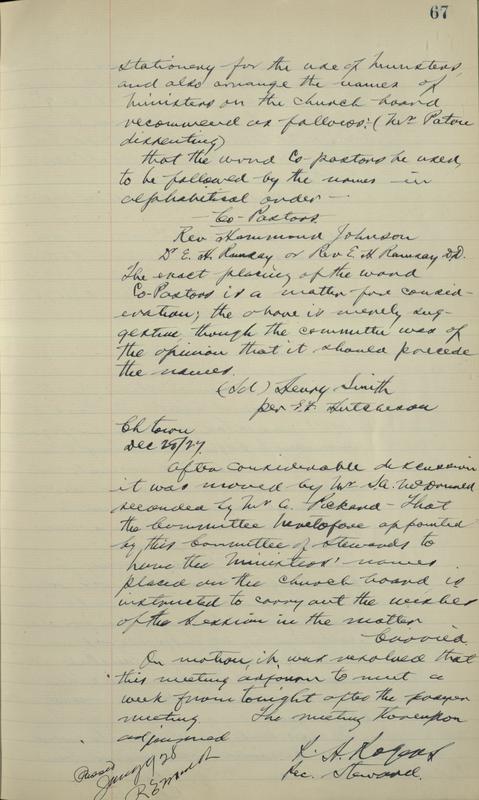 67
stationery for the use of ministers,
and also arrange the names of
ministers on the church board
recommend as follows: (Mr Paton
dissenting)
that the word Co-pastors be used,
to be followed by the names in
alphabetical order—
Co-Pastors
Rev Hammond Johnson
Dr E. H. Ramsay or Rev E. H Ramsay D.D.
The exact placing of the word
Co-Pastors is a matter for consid-
eration; the above is merely sug-
gestive, though the committee was of
the opinion that it should precede
the names.
(Sd) Henry Smith
per Hutcheson
Ch town
Dec 28/27
After considerable discussion
it was moved by Mr McDonald
seconded by Mr G. Pickard - That
the Committee heretofore appointed
by this Committee of Stewards to
have the Ministers' names
placed on the church board is
instructed to carry out the wishes
of the Session in the matter
Carried
On motion, it was resolved that
this meeting adjourn to meet a
week from tonight after the prayer
meeting. The meeting thereupon
adjourned
Passed
K. A. Rogers
Rec. Steward.